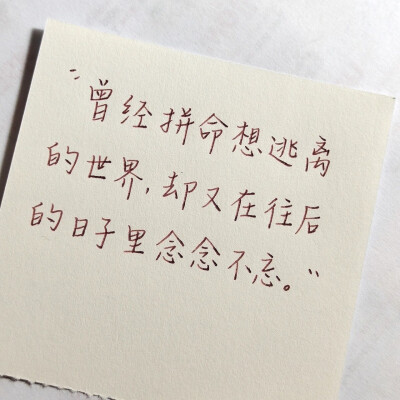 “曾经拼命想逃离
的世界,却又在往后
的日子里念念不忘。”